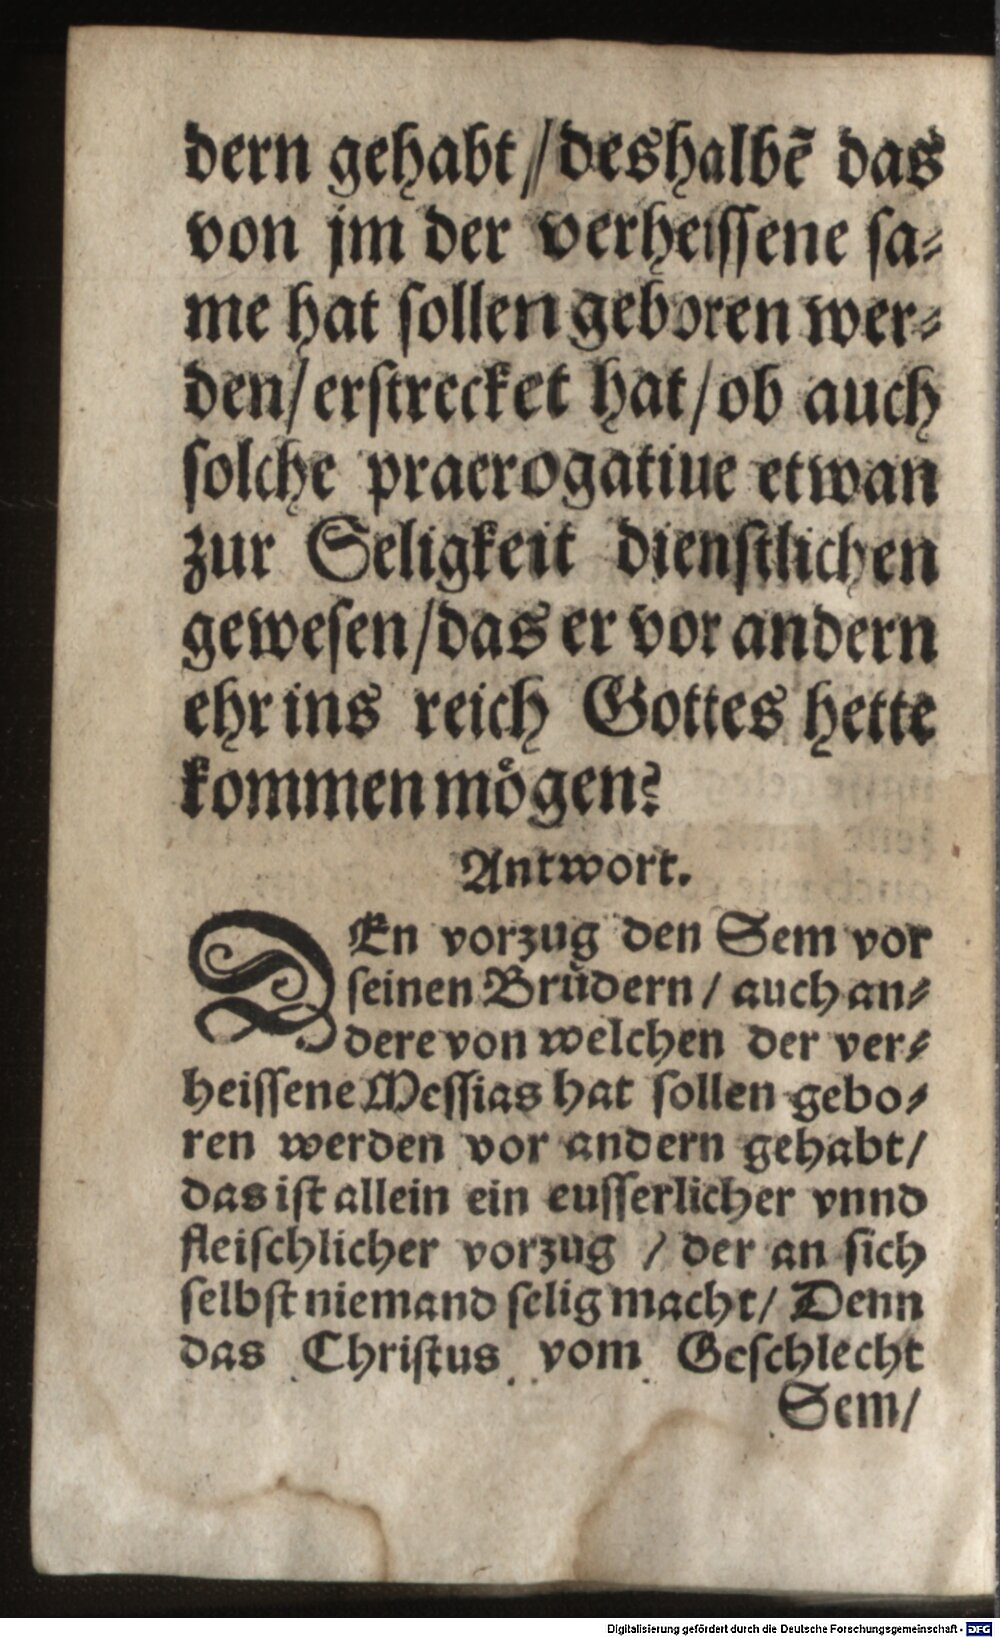 dern gehabt / deshalbẽ das
von jm der verheissene sa⸗
me hat sollen geboren wer⸗
den / erstrecket hat / ob auch
solche praerogatiue etwan
zur Seligkeit dienstlichen
gewesen / das er vor andern
ehr ins reich Gottes hette
kommen moͤgen?
Antwort.
DEn vorzug den Sem vor
seinen Bruͤdern / auch an⸗
dere von welchen der ver⸗
heissene Messias hat sollen gebo⸗
ren werden vor andern gehabt /
das ist allein ein eusserlicher vnnd
fleischlicher vorzug / der an sich
selbst niemand selig macht / Denn
das Christus vom Geschlecht
Sem /
Digitalisierung gefördert durch die Deutsche Forschungsgemeinschaft - DFG